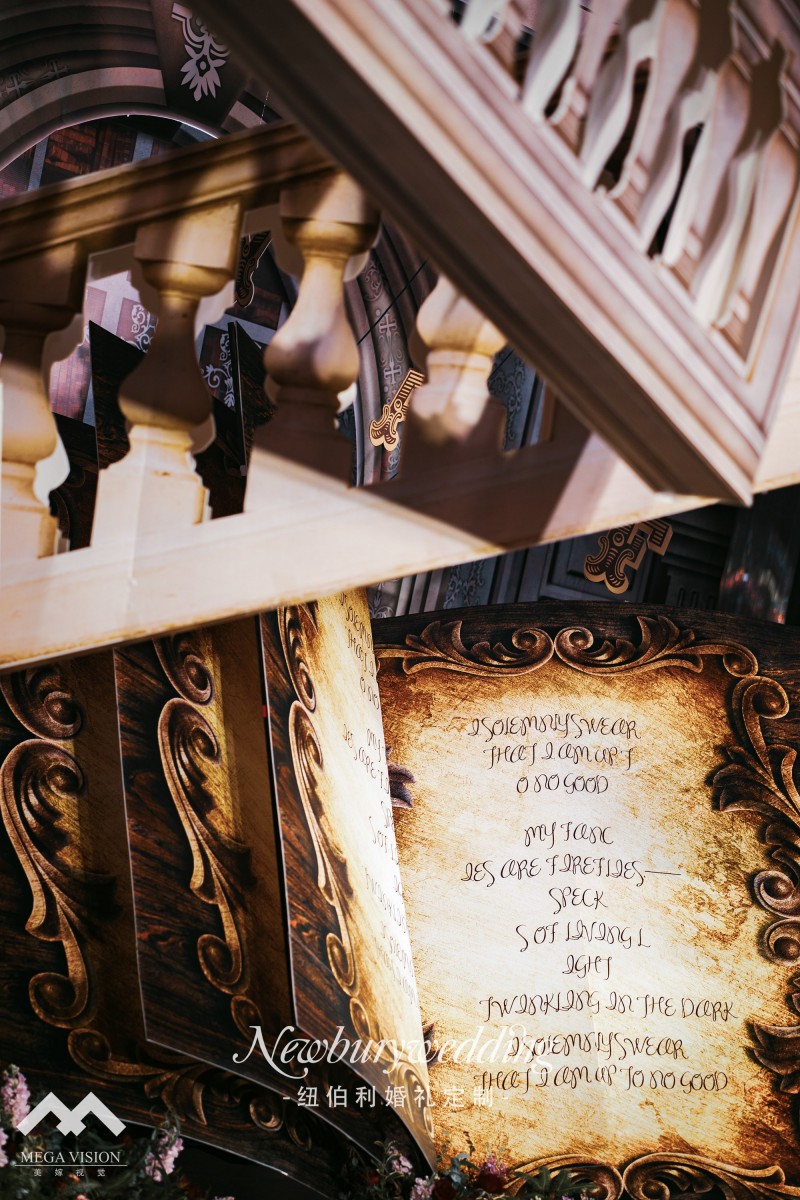 I SOLEMNLY SWEAR
THAT I AM UP T
O NO GOOD
MY FANC
IES ARE FIREFLIES—
SPECK
S OF LIVING L
IGHT
TWINKLING IN THE DARK
I SOLEMNLY SWEAR
THAT I AM UP TO NO GOOD
Newburywedding
-纽伯利婚礼定制-
MEGA VISION
美嫁视觉